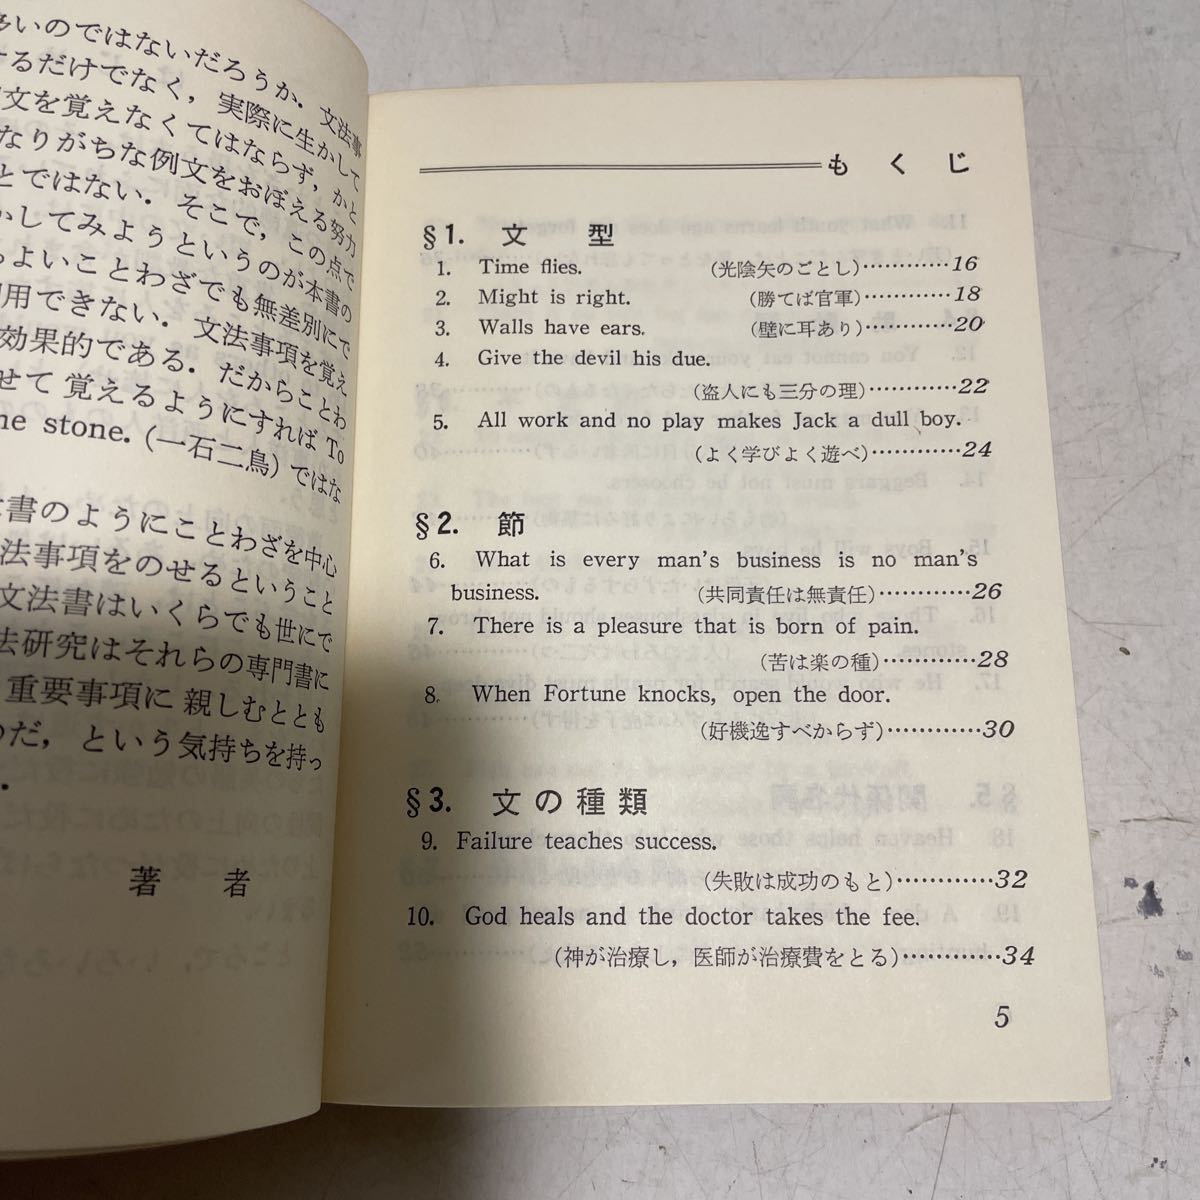 多いのではないだろうか．文法事
するだけでなく，実際に生かして
文を覚えなくてはならず，かと
なりがちな例文をおぼえる努力
とではない．そこで，この点で
かしてみようというのが本書の
よいことわざでも無差別にで
用できない．文法事項を覚え
効果的である．だからことわ
せて覚えるようにすれば To
stone. (一石二鳥) ではな
書のようにことわざを中心
法事項をのせるということ
文法書はいくらでも世にで
法研究はそれらの専門書に
重要事項に親しむととも
のだ，という気持ちを持っ
．
著者
もくじ
§1. 文型
1. Time flies. (光陰矢のごとし)…………16
2. Might is right. (勝てば官軍)…………18
3. Walls have ears. (壁に耳あり)…………20
4. Give the devil his due.
(盗人にも三分の理)…………22
5. All work and no play makes Jack a dull boy.
(よく学びよく遊べ)…………24
§2. 節
6. What is every man's business is no man's
business. (共同責任は無責任)…………26
7. There is a pleasure that is born of pain.
(苦は楽の種)…………28
8. When Fortune knocks, open the door.
(好機逸すべからず)…………30
§3. 文の種類
9. Failure teaches success.
(失敗は成功のもと)…………32
10. God heals and the doctor takes the fee.
(神が治療し，医師が治療費をとる)…………34
5